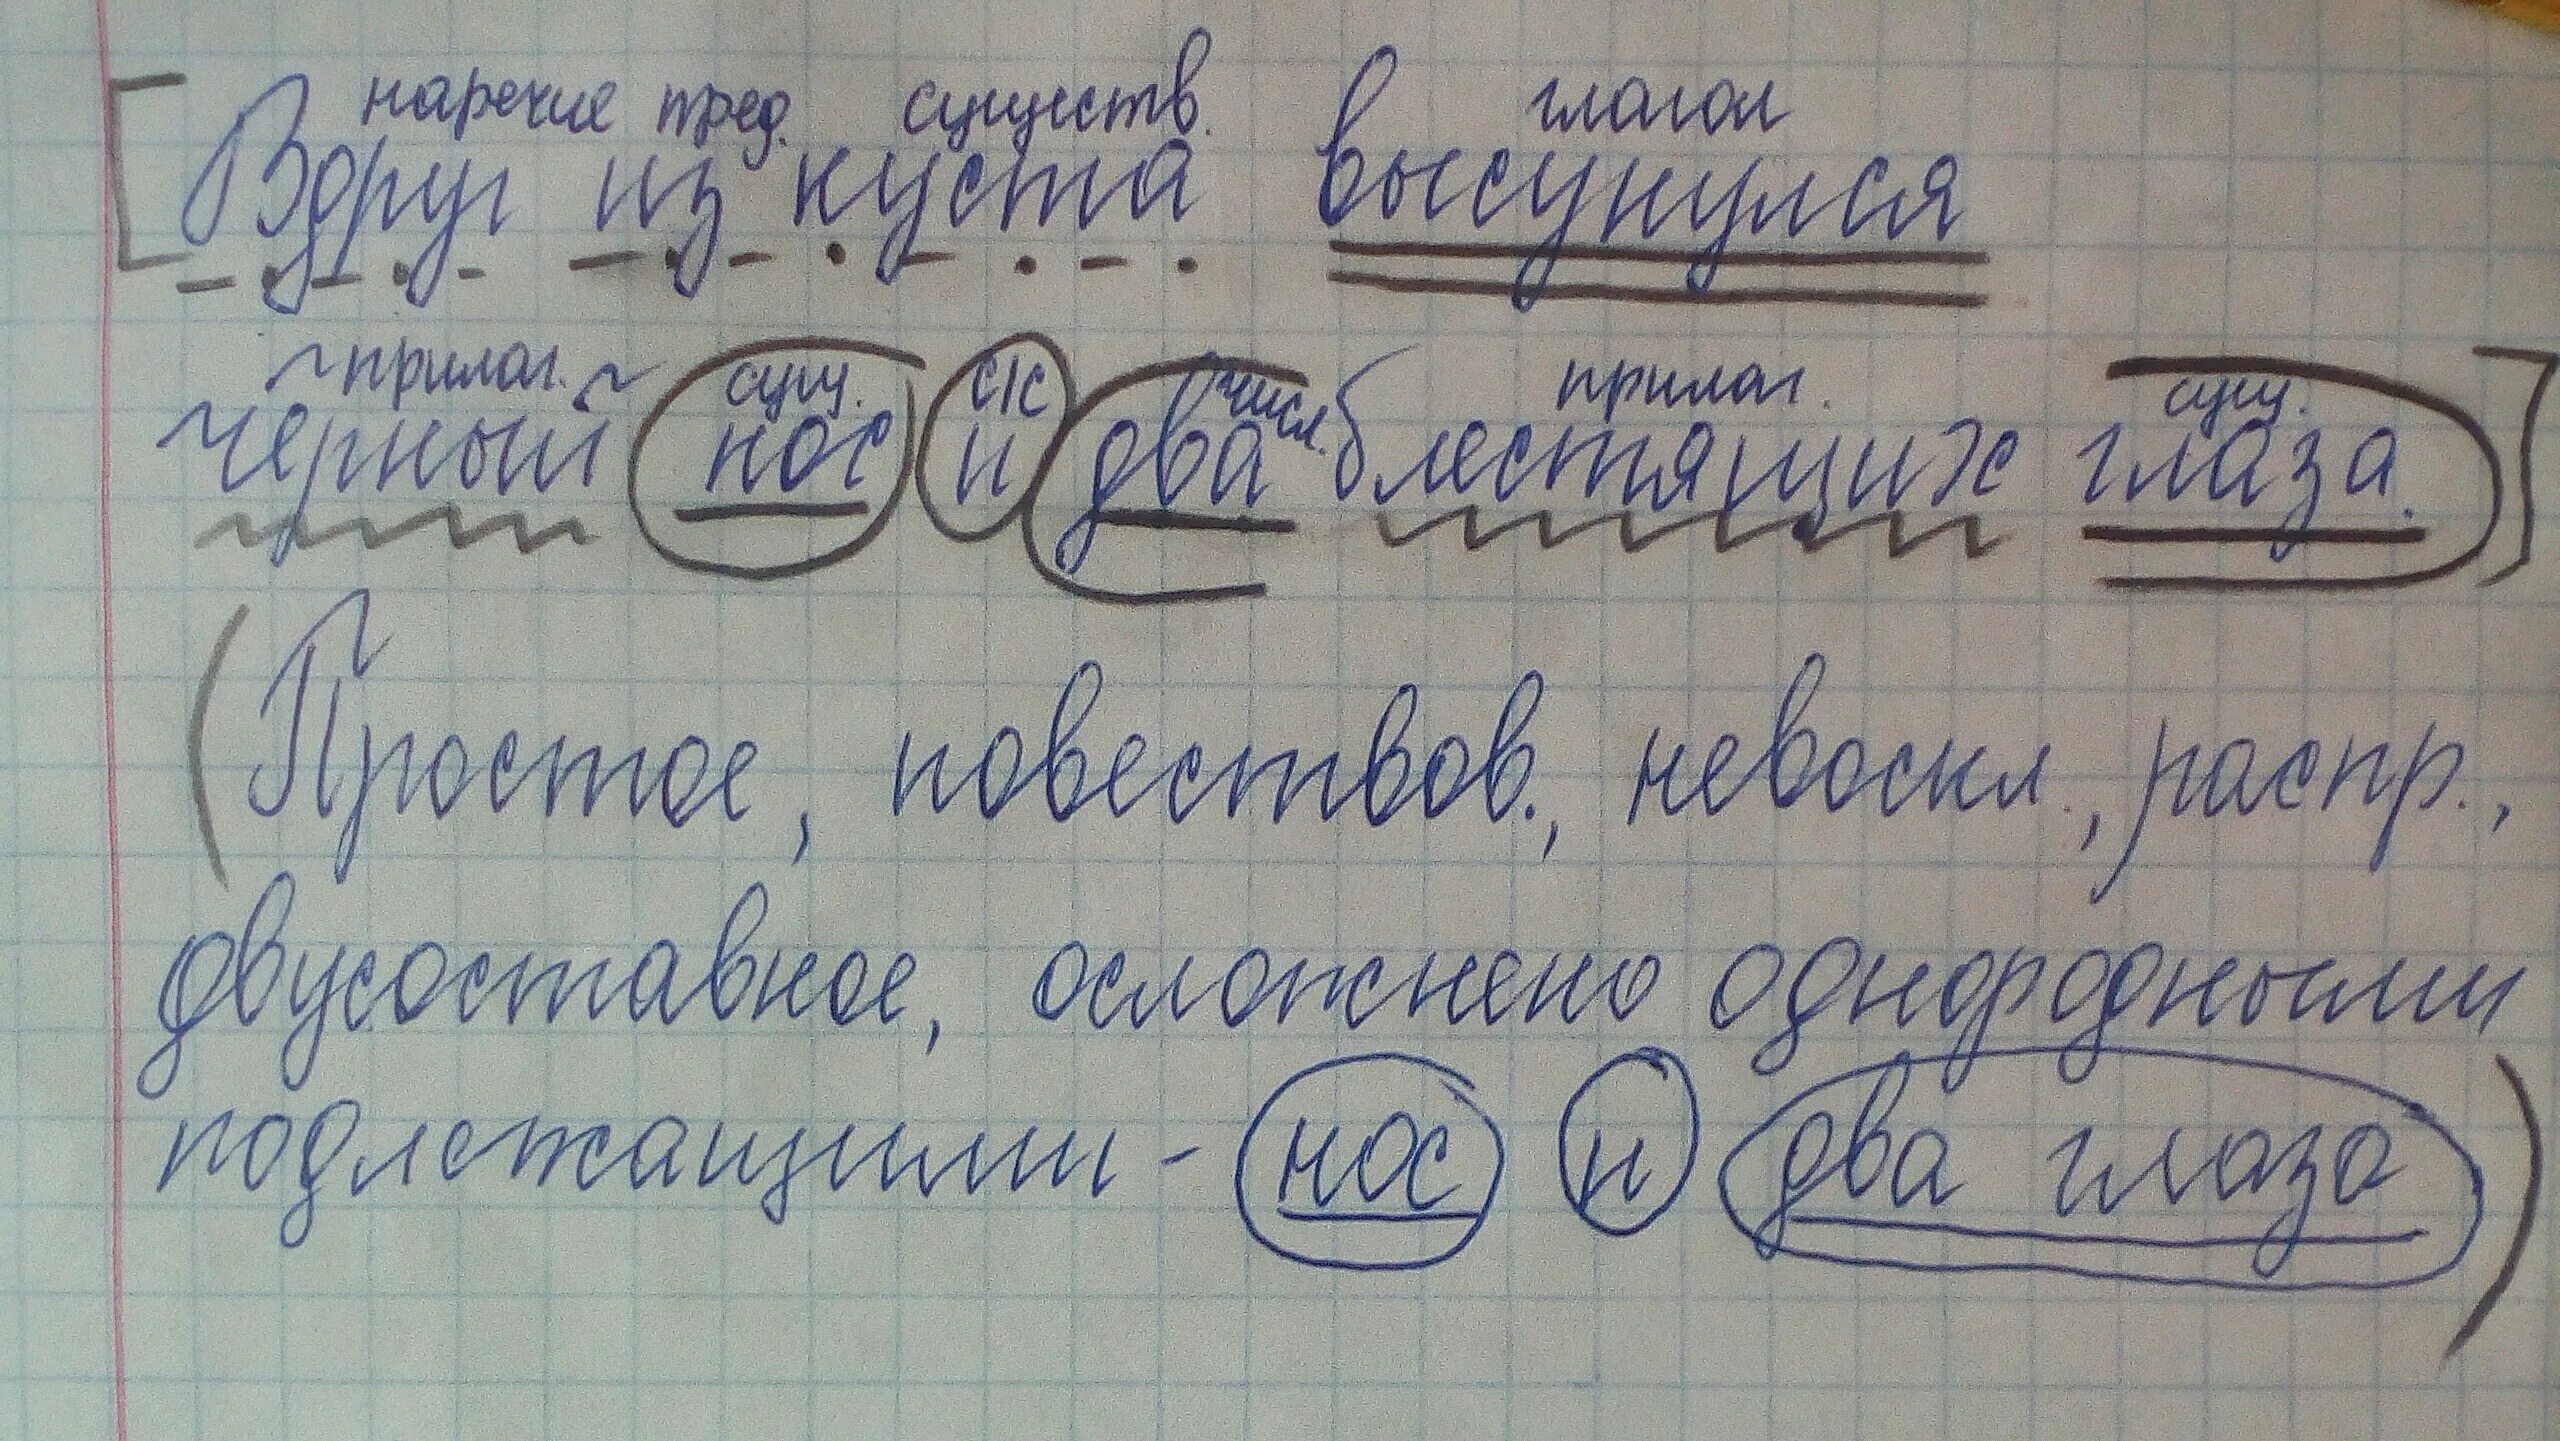 наречие пред. существ. глагол
[Вдруг из куста высунулся
прилаг. сущ. с/с числ. прилаг. сущ.
чёрный нос и два блестящих глаза.]
(Простое, повествов., невоскл., распр.,
двусоставное, осложнено однородными
подлежащими - нос и два глаза)